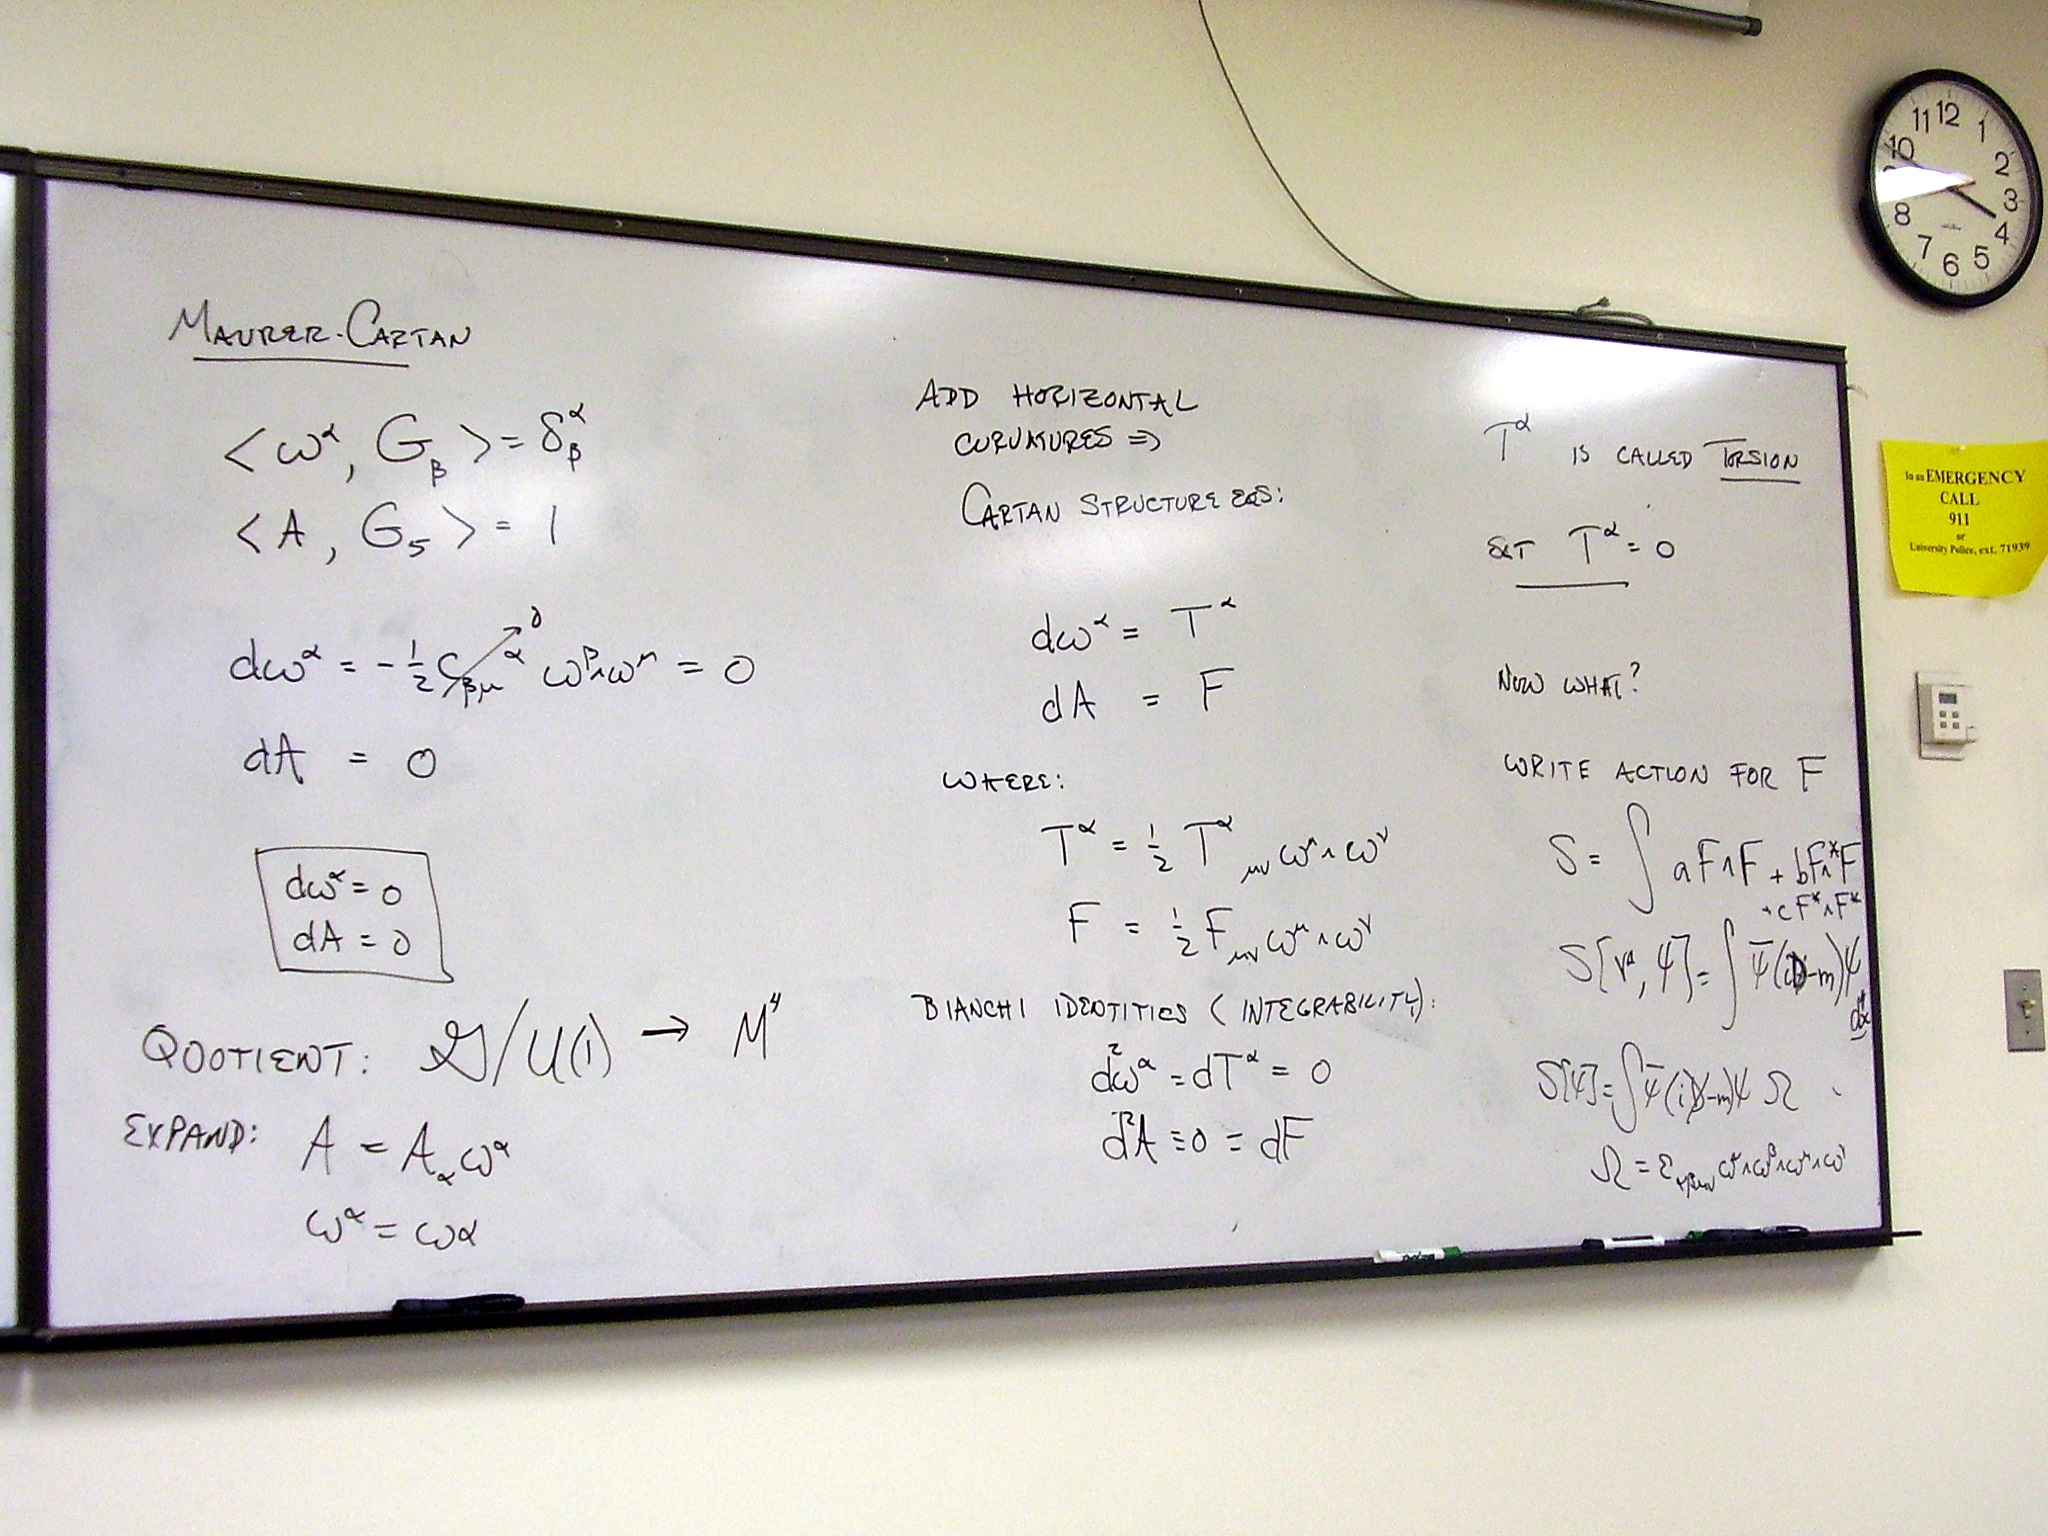 MAURER-CARTAN
<ω^α, G_β> = δ^α_β
<A, G_5> = 1
dω^α = -1/2 C_βμ^α ω^β∧ω^μ = 0
0
dA = 0
dω^α = 0
dA = 0
QUOTIENT: 𝒢/U(1) → M^4
EXPAND: A = A_α ω^α
ω^α = ωα
ADD HORIZONTAL
CURVATURES ⇒
CARTAN STRUCTURE EQS:
dω^α = T^α
dA = F
WHERE:
T^α = 1/2 T^α_μν ω^μ∧ω^ν
F = 1/2 F_μν ω^μ∧ω^ν
BIANCHI IDENTITIES (INTEGRABILITY):
d²ω^α = dT^α = 0
d²A ≡ 0 = dF
T^α IS CALLED TORSION
SET T^α = 0
NOW WHAT?
WRITE ACTION FOR F
S = ∫ aF∧F + bF∧*F
+ cF*∧F*
S[V^α, Ψ] = ∫ Ψ̄(iD̸-m)Ψ
d⁴x
S[Ψ] = ∫Ψ̄(iD̸-m)Ψ Ω
Ω = ε_αβμν ω^α∧ω^β∧ω^μ∧ω^ν
11 12 1
10 2
3
8 4
7 6 5
In an EMERGENCY
CALL
911
or
University Police, ext. 71939